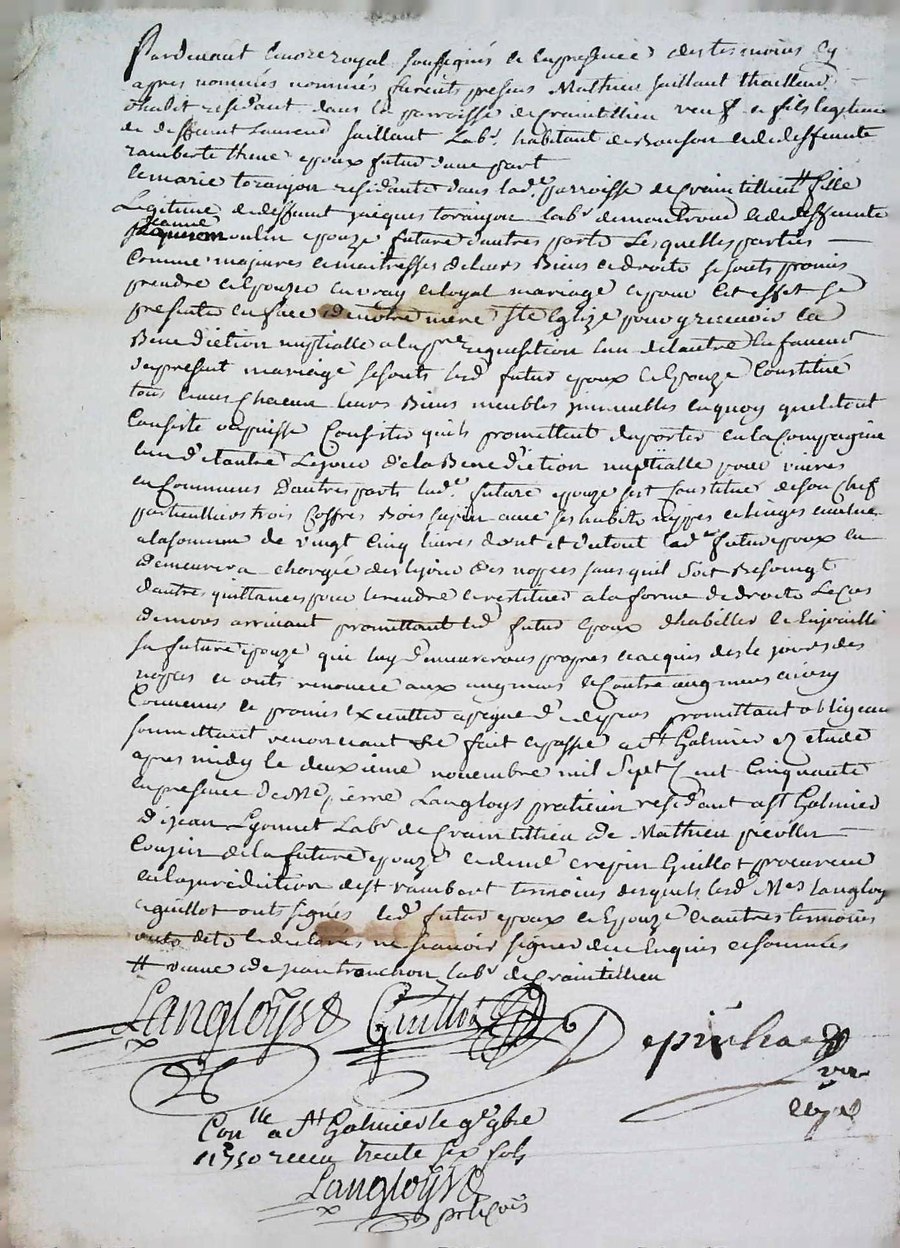 Pardevant le no.re royal soussignés et en presence des tesmoins cy
apres nommés nommés furent presens Mathieu saillant
d'habit residant dans la parroisse de Craintillieu veuf et fils legitime
de deffunt Laurend saillant lab.r habitant de Bonson et de deffuncte
ramberte epoux futur d'une part
et marie toranjon residante dans lad.e parroisse de Craintillieu # fille
Legitime de deffunt jacques toranjon lab.r de montrond et de deffuncte
jeanne moulin epouze future d'autres parts Lesquelles parties
comme majeures et maitresses de leurs Biens et droits se sonts promis
prendre et Epouzer en vray et loyal mariage et pour cet effet se
presenter en face de notre mere Ste Eglize pour y recevoir la
Benediction nuptialle a la pre requisition l'un de lautre En faveur
du present mariage se sonts lesd. futur epoux et Epouze Constitué
tous et uns chacuns leurs Biens meubles immeubles en quoy quels tout
Consiste ou puisse Consister quils promettent de porter en la Compagnie
lun de lautre Le jour de la Benediction nuptialle pour vivre
en Communs d'autres parts lad.e future epouze s'est Constitué de son chef
particulliers trois Coffres Bois sapin avec ses habits nippes et linges
a la somme de vingt cinq livres dont et du tout led. futur epoux en
demeurera chargée des le jour des nopces sans quil soit Besoingt
d'autres quittances pour le rendre et restitues a la forme de droits Le cas
de mort arrivant promettant led. futur Epoux d'habiller et Enjouailler
sa future epouze qui luy demeureront propres et acquis des le jours des
nopces et onts renoncé aux augment et Contre augment ainsy
Convenus et promis executter a peyne de depens promettant obligeant
soumettant renonceant fait et passé a St Galmier en etude
apres midy le deuxieme novembre mil Sept Cent Cinquante
en presence de Me pierre Langloys praticien residant a St Galmier
d jean Lyonnet Lab.r de Craintillieu de Mathieu
Cousin de la future epouze et de crepin Guillot procureur
en la jurediction de St rambert temoins desquels lesd. Mes Langloys
et guillot onts signés led. futur epoux et Epouze et autres temoins
onts dit et declarés ne scavoir signer de ce Enquis et sommés
# veuve de jean tronchon lab.r de Craintillieu
Langloys Guillot Depinhac
no.re
royal
Con.lle a St Galmier le 9e 9bre
1750 receu trente six sols
Langloys